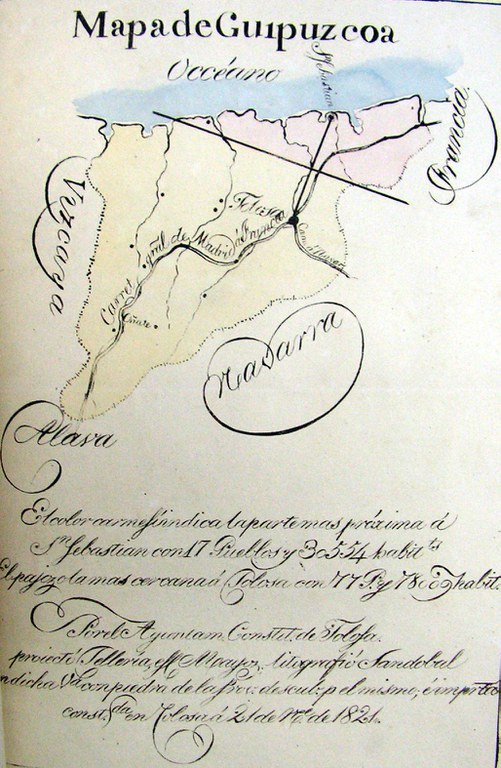 Mapa de Guipuzcoa
Occéano
Sn. Sebastian
Francia
Vizcaya
Tolosa
Carret. gral. de Madrid á Francia
Oñate
Navarra
Alava
El color carmesí indica la parte mas próxima á
Sn. Sebastian con 17 Pueblos y 30554 habitts.
El pajizo la mas cercana á Tolosa con 77 P. y
habit.
Por el Ayuntam. Constit. de Tolosa.
proiectó Tellería, litografió Sandobal
en dicha con piedra de la Prov. el mismo, é
const. en Tolosa á 21 de de 1821.